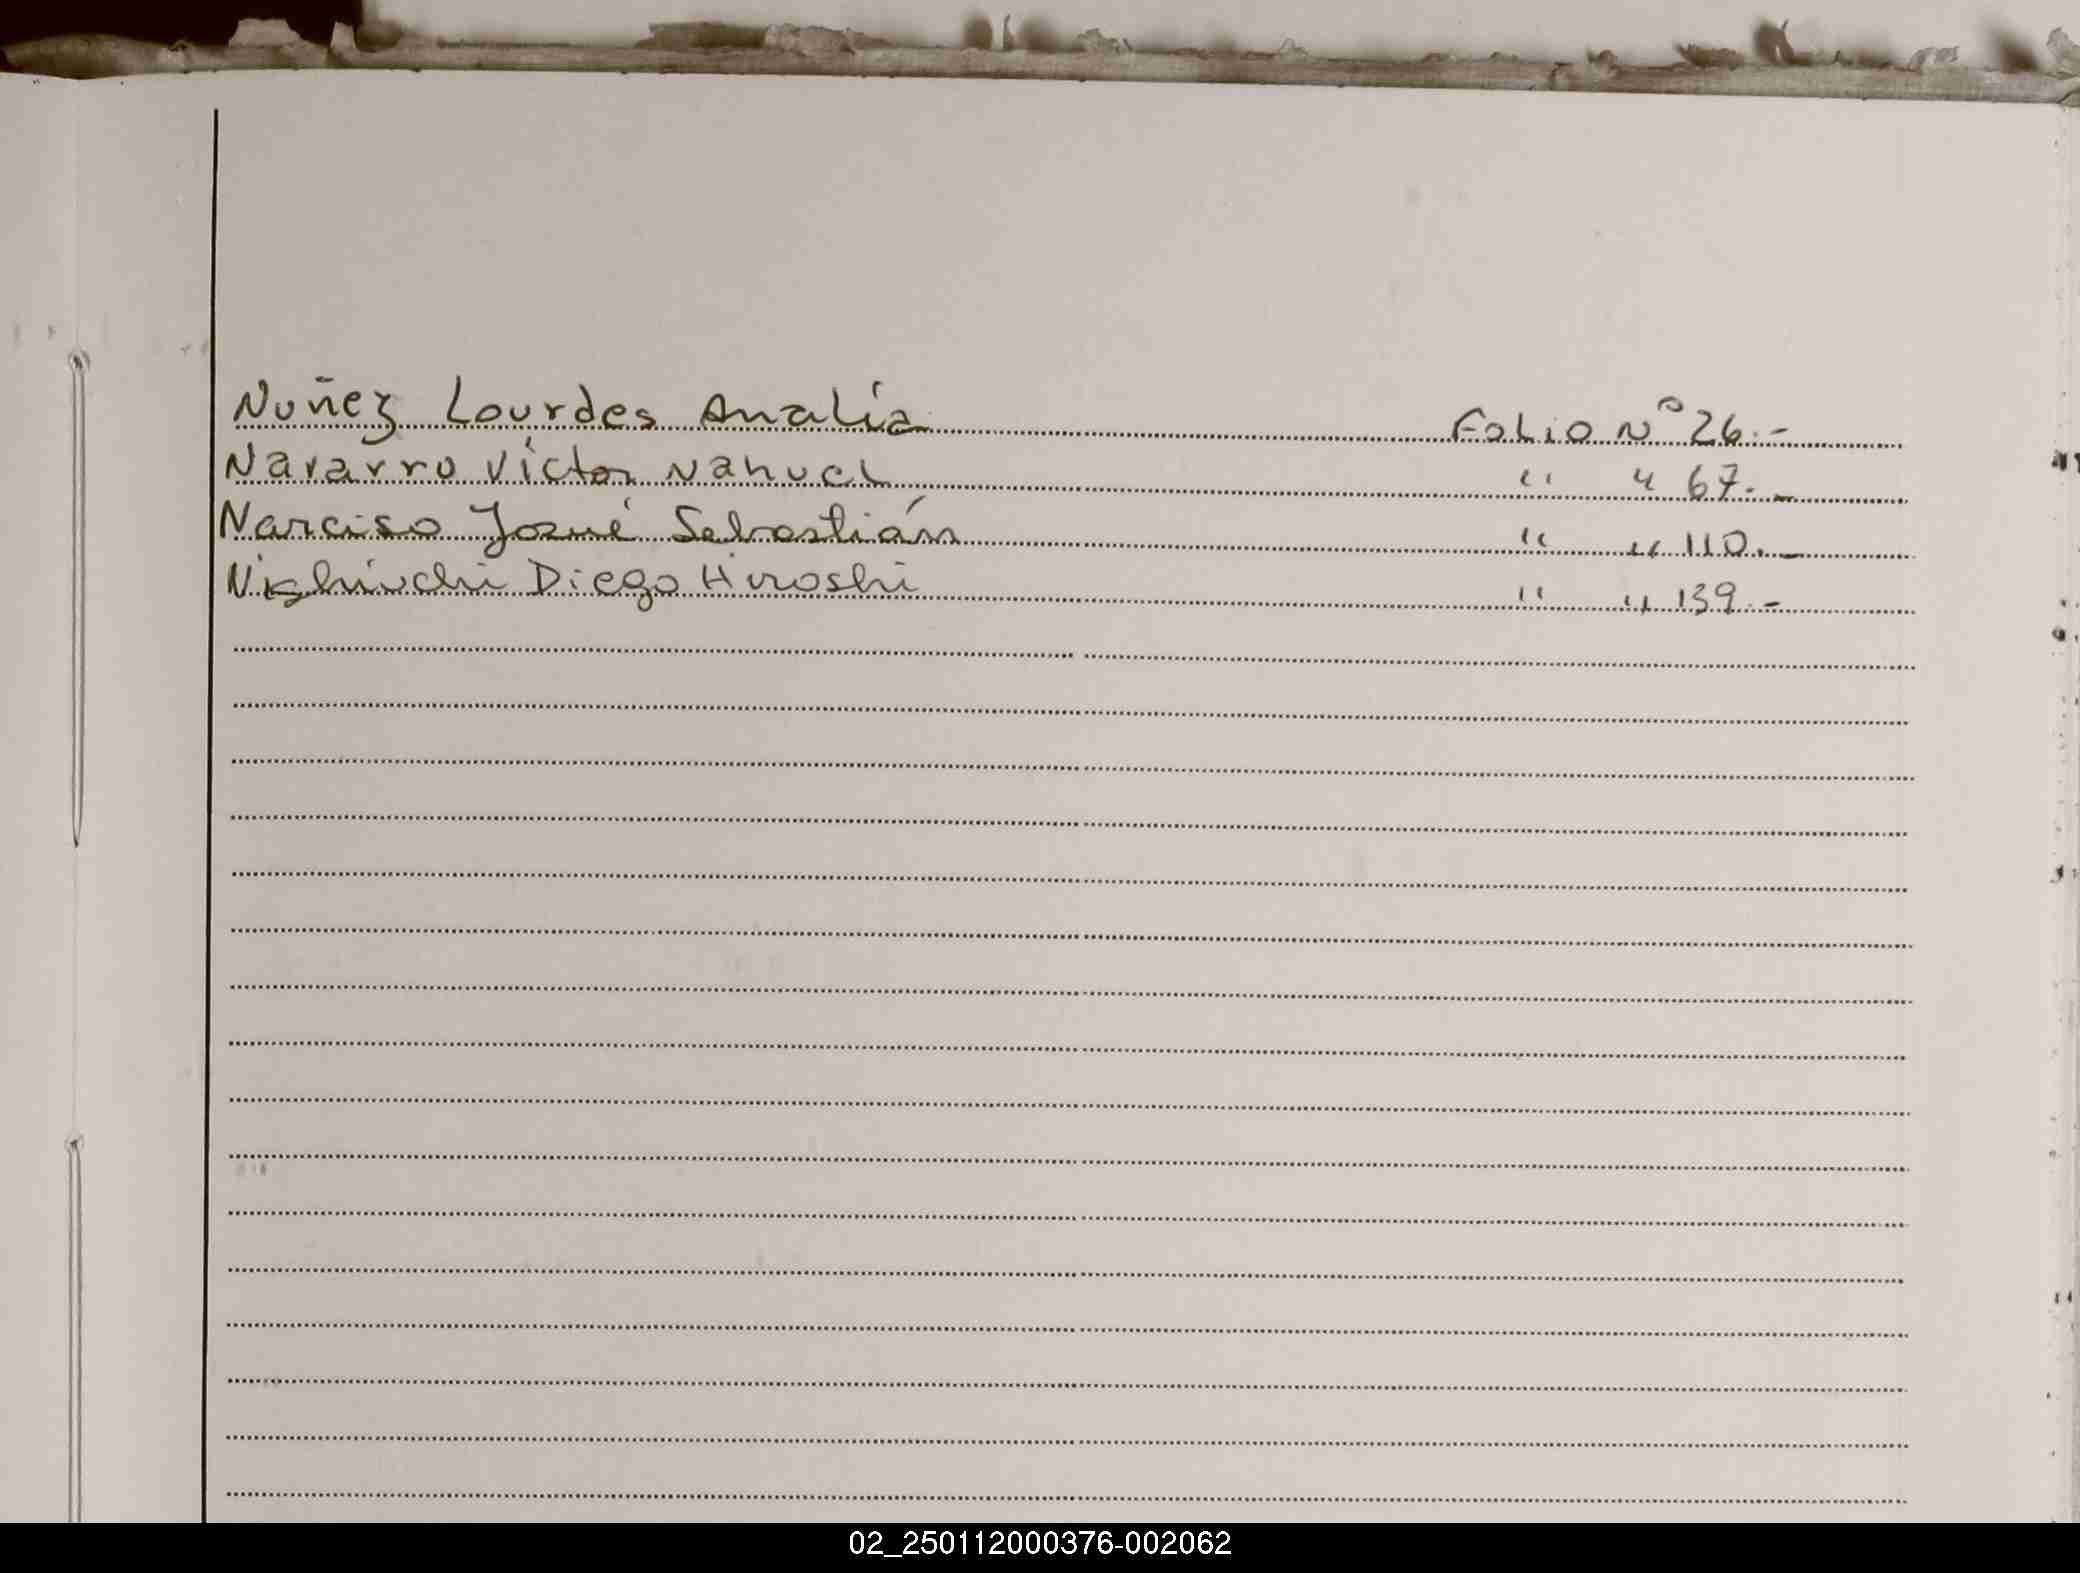 Nuñez Lourdes Analía Folio Nº 26.-
Navarro Víctor Nahuel " " 67.-
Narciso Josué Sebastián " " 110.-
Nishiuchi Diego Hiroshi " " 139.-
02_250112000376-002062